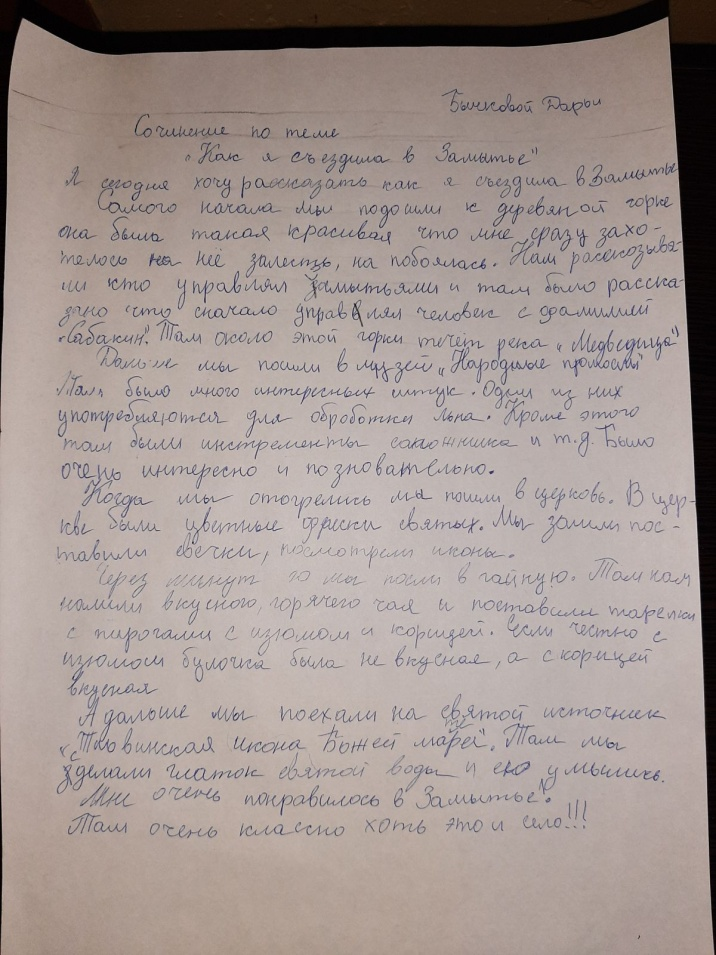 Бычковой Дарьи
Сочинение по теме
„Как я съездила в Замытье"
Я сегодня хочу рассказать как я съездила в Замытье
Самого начала мы подошли к деревяной горке
она была такая красивая что мне сразу захо-
телось на неё залесть, на побоялась. Нам рассказыва-
ли кто управлял Замытьями и там было расска-
зано что сначало управлял человек с фамилией
„Сабакин". Там около этой горки течёт река „Медведица"
Дальше мы пошли в музей „Народные промослы"
Там было много интересных штук. Одни из них
употребляются для обработки льна. Кроме этого
там были инстременты сапожника и т.д. Было
очень интересно и позновательно.
Когда мы отогрелись мы пошли в церковь. В цер-
кве были цветные фрески святых. Мы зашли пос-
тавили свечки, посмотрели иконы.
Через минут 10 мы пошли в чайную. Там нам
налили вкусного, горячего чая и поставили тарелки
с пирогами с изюмом и корицей. Если честно с
изюмом булочка была не вкусная, а с корицей
вкусная
А дальше мы поехали на святой источник
„Тновинская икона Божей матери". Там мы
сделали глаток святой воды и умылись.
Мне очень понравилось в Замытье".
Там очень классно хоть это и село!!!